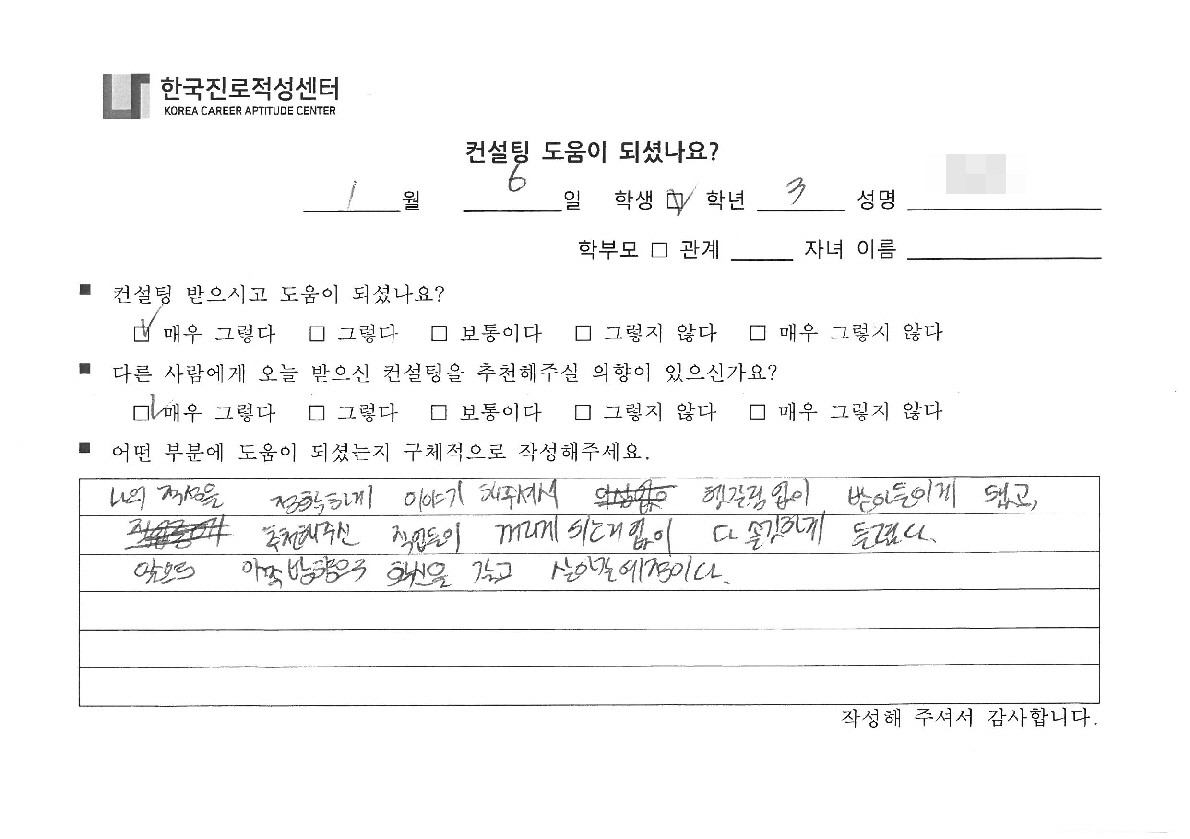 한국진로적성센터
KOREA CAREER APTITUDE CENTER
컨설팅 도움이 되셨나요?
1 월 6 일 학생 ☑ 학년 3 성명
학부모 □ 관계 자녀 이름
■ 컨설팅 받으시고 도움이 되셨나요?
☑ 매우 그렇다 □ 그렇다 □ 보통이다 □ 그렇지 않다 □ 매우 그렇지 않다
■ 다른 사람에게 오늘 받으신 컨설팅을 추천해주실 의향이 있으신가요?
☑ 매우 그렇다 □ 그렇다 □ 보통이다 □ 그렇지 않다 □ 매우 그렇지 않다
■ 어떤 부분에 도움이 되셨는지 구체적으로 작성해주세요.
나의 적성을 정확하게 이야기 해주셔서 헷갈림 없이 받아들이게 됐고,
추천해주신 직업들이 꺼리게 되는거 없이 다 솔깃하게 들렸다.
앞으로 이쪽 방향으로 확신을 갖고 살아갈 예정이다.
작성해 주셔서 감사합니다.